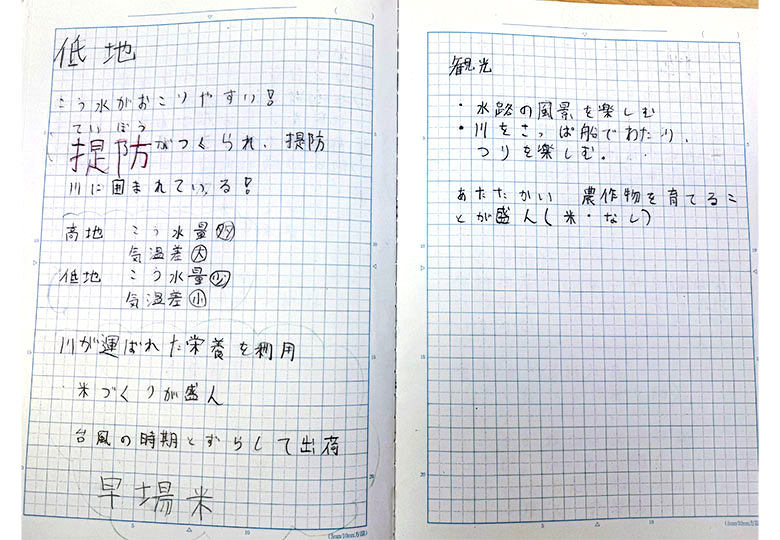 低地
こう水がおこりやすい!
ていぼう
提防がつくられ、提防
川に囲まれている!
高地 こう水量多
気温差大
低地 こう水量少
気温差小
川が運ばれた栄養を利用
米づくりが盛ん
台風の時期とずらして出荷
早場米
観光
・水路の風景を楽しむ
・川をさっぱ船でわたり、
つりを楽しむ。
あたたかい 農作物を育てるこ
とが盛ん(米・なし)